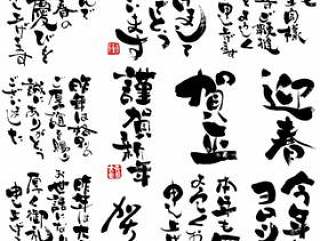 皆様
よろしく
申し上げます
けまして
でとう
います
んで
春の
慶びを
上げます
迎春
賀正
謹賀新年
昨年は格別の
ご厚誼を賜り
誠にありがとう
ございました
今年も
ヨロシ
本年も
よろしくお
申し上
昨年は大
お世話にな
厚く御礼
申し上げ